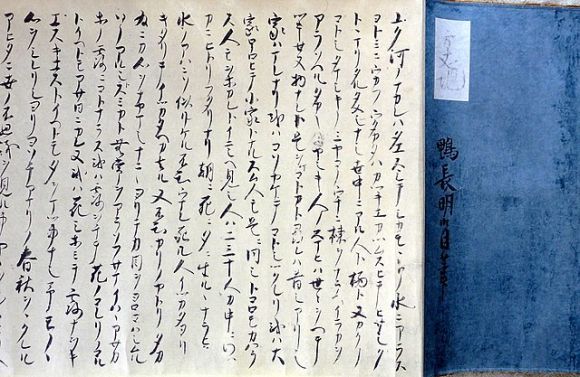 方丈記
鴨長明自筆
ユク河ノナカレハタエスシテシカモモトノ水ニアラス
ヨトミニウカフウタカタハカツキエカツムスヒテヒサシク
トトマリタルタメシナシ世中ニアル人ト栖ト又カクノコ
トシタマシキノミヤコノウチニ棟ヲナラヘイラカヲ
アラソヘルタカキイヤシキ人ノスマヒハ世々ヲヘテ
ツキセヌ物ナレト是ヲマコトカト尋レハ昔シアリシ
家ハマレナリ或ハコソヤケテコトシツクレリ或ハ大
家ホロヒテ小家トナルスム人モ是ニ同シトコロモカハラ
ス人モオホカレトイニシヘ見シ人ハ二三十人カ中ニワツ
カニヒトリフタリナリ朝ニ死ニ夕ニ生ルルナラヒ
水ノアハニソ似リケル不知ウマレ死ル人イツカタヨリ
キタリテイツカタヘカ去ル又不知カリノヤトリタカ
為ニカ心ヲナヤマシナニニヨリテカ目ヲヨロコハシムル
ソノアルシトスミカト無常ヲアラソフサマイハハアサカ
ホノ露ニコトナラス或ハ露ヲチテ花ノコレリノコル
トイヘトモアサ日ニカレヌ或ハ花シホミテ露ナヲキ
エスキエストイヘトモタヲマツ事ナシ予モノノ
心ヲシレリシヨリヨソチアマリノ春秋ヲヲクレル
アヒタニ世ノ不思議ヲ見ル事